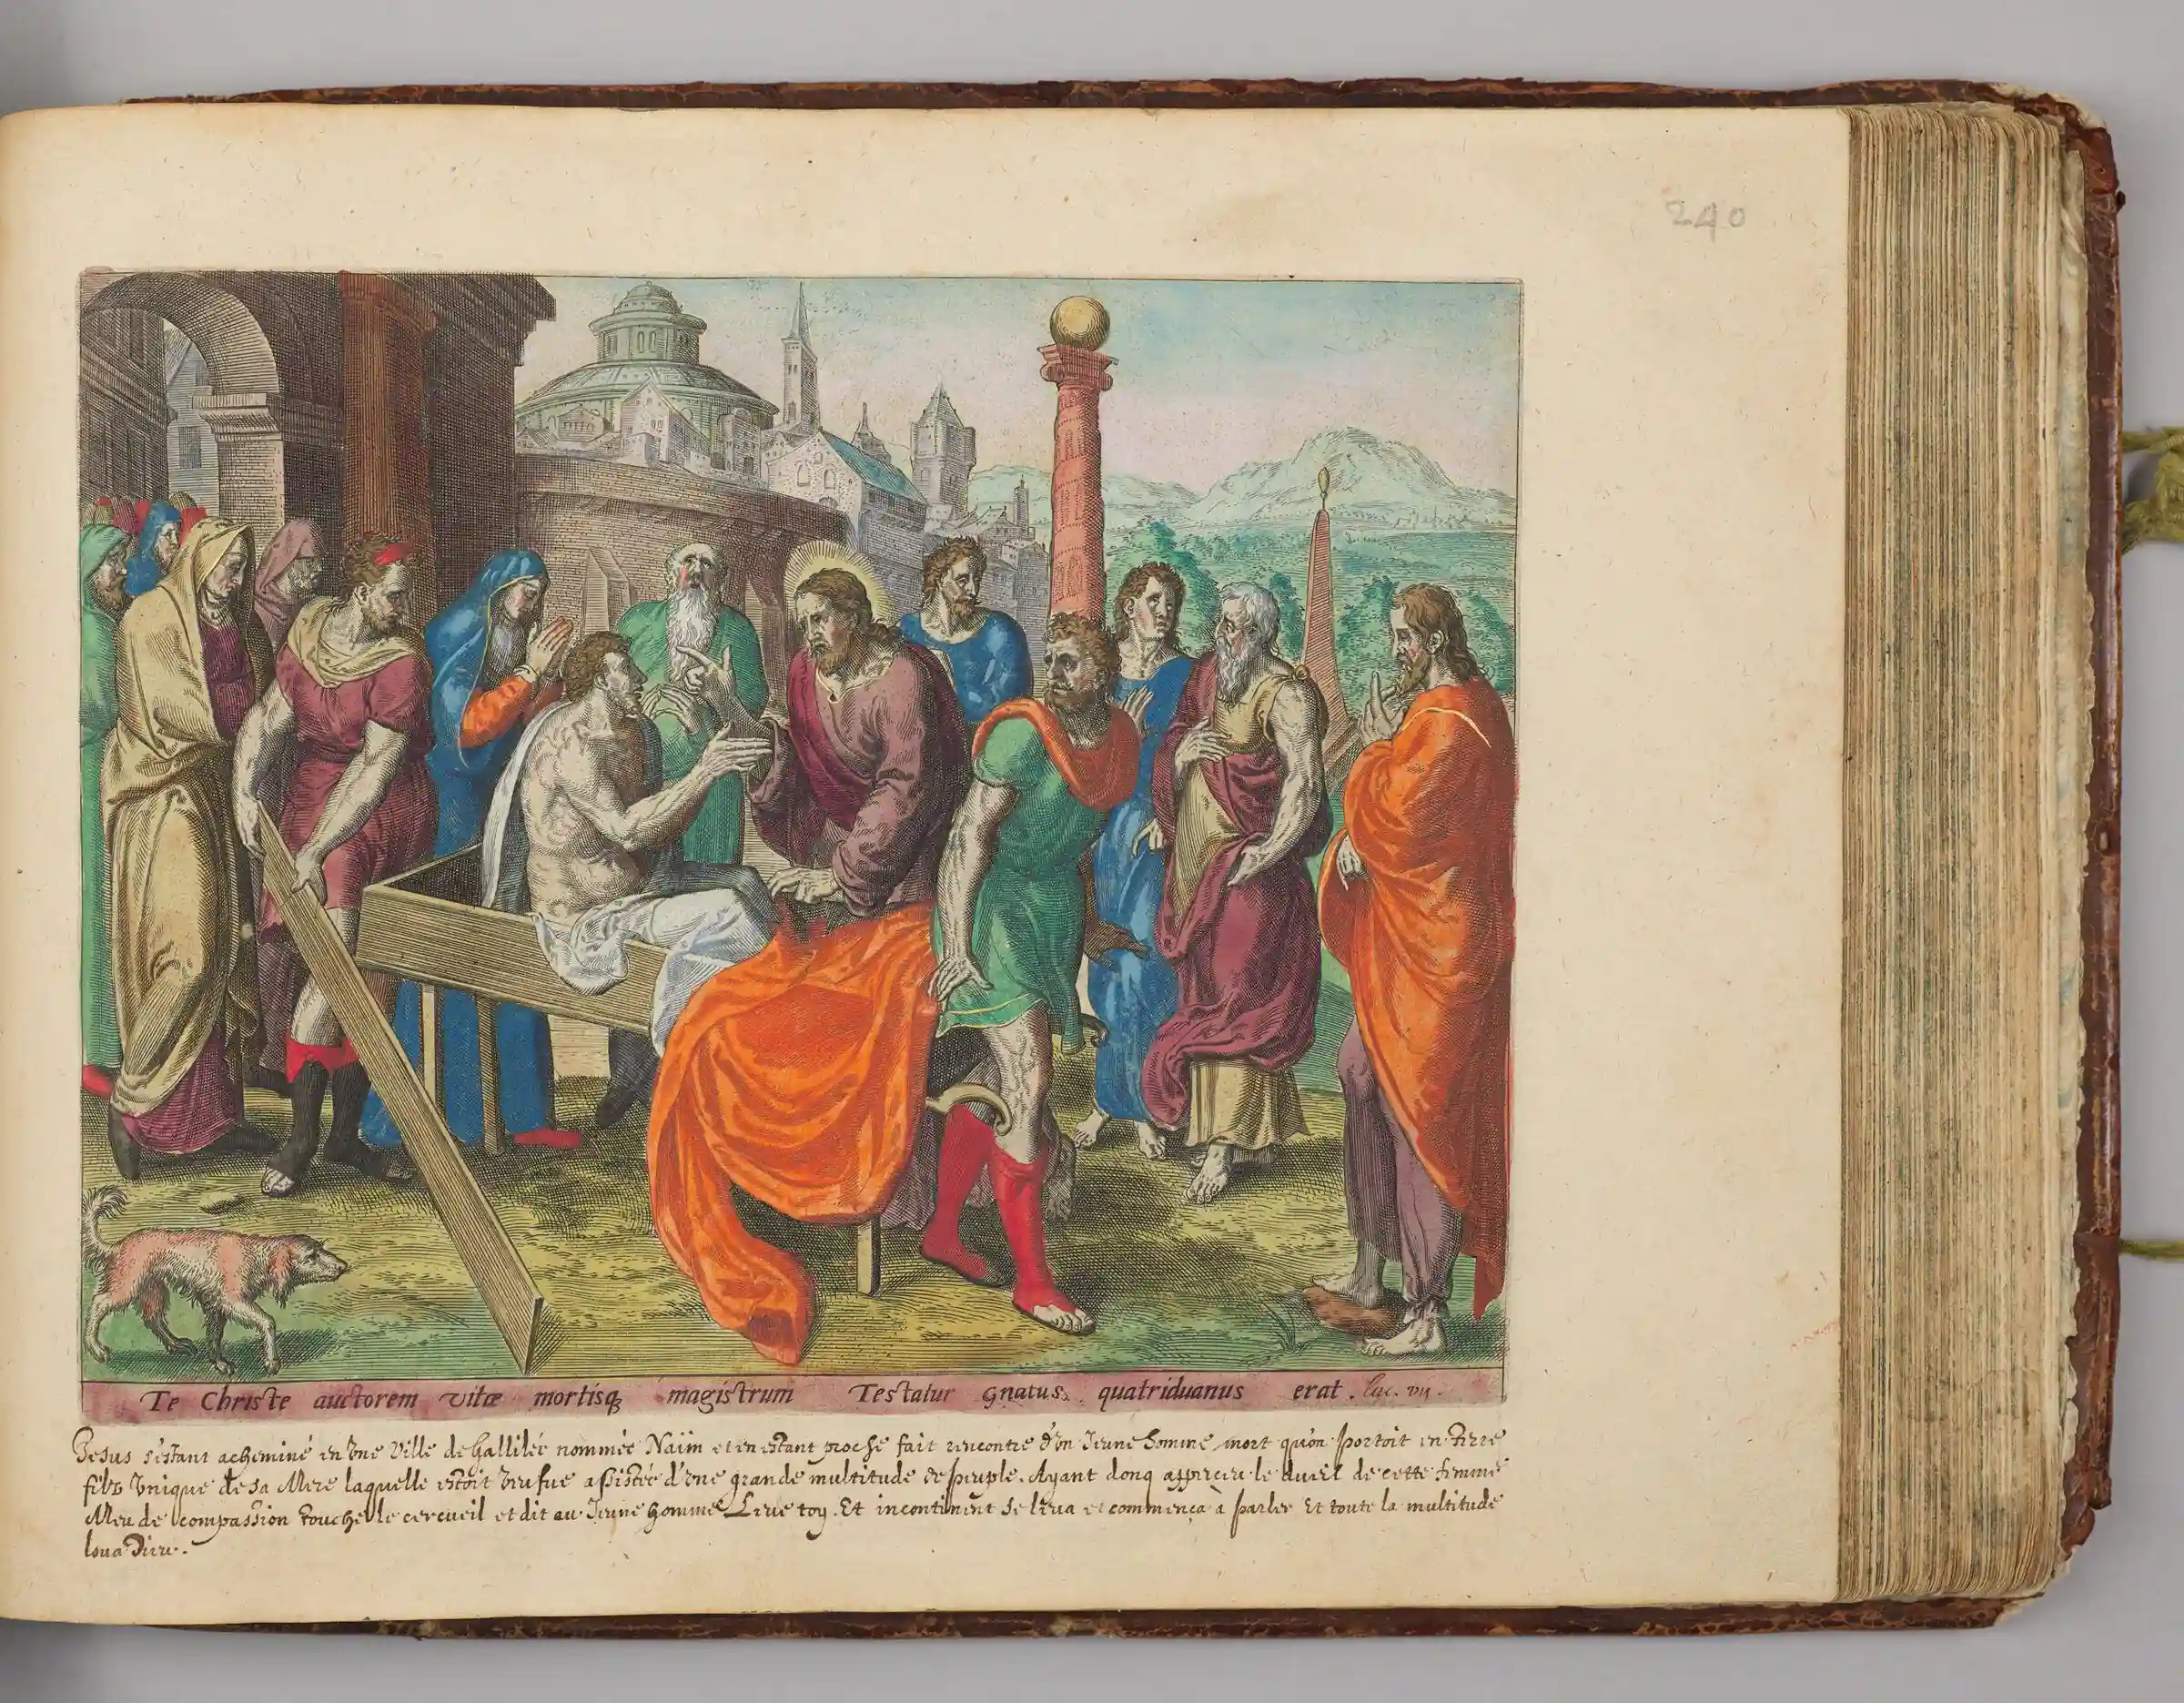 240
Te Christe auctorem vitæ mortisq magistrum Testatur Gnatus, quatriduanus erat. Luc. VII.
Jesus s'estant acheminé en vne Ville de Gallilée nommée Naïm et en estant proche fait rencontre d'vn Jeune homme mort qu'on portoit en terre
filz vnique de sa Mere laquelle estoit veufue assistée d'vne grande multitude de peuple. Ayant donq apperceu le dueil de cette femme
Meu de compassion touche le cercueil et dit au Jeune homme Leue toy. Et incontinent se leua et commença à parler Et toute la multitude
loua Dieu.